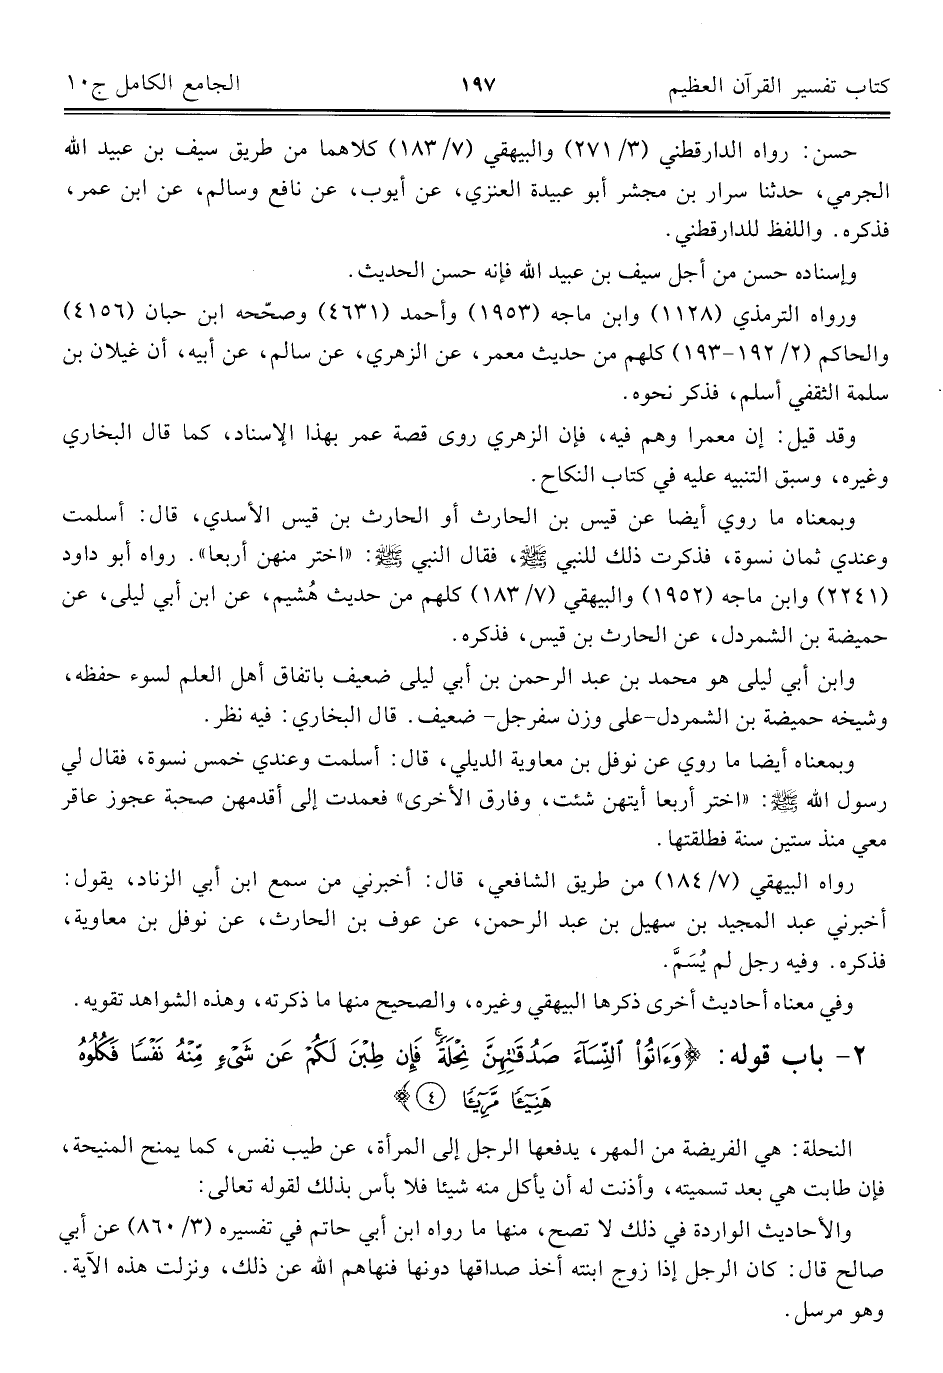 كتاب تفسير القرآن العظيم ١٩٧ الجامع الكامل ج١٠
حسن: رواه الدارقطني (٣/ ٢٧١) والبيهقي (٧/ ١٨٣) كلاهما من طريق سيف بن عبيد الله
الجرمي، حدثنا سرار بن مجشر أبو عبيدة العنزي، عن أيوب، عن نافع وسالم، عن ابن عمر،
فذكره. واللفظ للدارقطني.
وإسناده حسن من أجل سيف بن عبيد الله فإنه حسن الحديث.
ورواه الترمذي (١١٢٨) وابن ماجه (١٩٥٣) وأحمد (٤٦٣١) وصحّحه ابن حبان (٤١٥٦)
والحاكم (٢/ ١٩٢-١٩٣) كلهم من حديث معمر، عن الزهري، عن سالم، عن أبيه، أن غيلان بن
سلمة الثقفي أسلم، فذكر نحوه.
وقد قيل: إن معمرا وهم فيه، فإن الزهري روى قصة عمر بهذا الإسناد، كما قال البخاري
وغيره، وسبق التنبيه عليه في كتاب النكاح.
وبمعناه ما روي أيضا عن قيس بن الحارث أو الحارث بن قيس الأسدي، قال: أسلمت
وعندي ثمان نسوة، فذكرت ذلك للنبي ﷺ، فقال النبي ﷺ: «اختر منهن أربعا». رواه أبو داود
(٢٢٤١) وابن ماجه (١٩٥٢) والبيهقي (٧/ ١٨٣) كلهم من حديث هُشيم، عن ابن أبي ليلى، عن
حميضة بن الشمردل، عن الحارث بن قيس، فذكره.
وابن أبي ليلى هو محمد بن عبد الرحمن بن أبي ليلى ضعيف باتفاق أهل العلم لسوء حفظه،
وشيخه حميضة بن الشمردل-على وزن سفرجل- ضعيف. قال البخاري: فيه نظر.
وبمعناه أيضا ما روي عن نوفل بن معاوية الديلي، قال: أسلمت وعندي خمس نسوة، فقال لي
رسول الله ﷺ: «اختر أربعا أيتهن شئت، وفارق الأخرى» فعمدت إلى أقدمهن صحبة عجوز عاقر
معي منذ ستين سنة فطلقتها.
رواه البيهقي (٧/ ١٨٤) من طريق الشافعي، قال: أخبرني من سمع ابن أبي الزناد، يقول:
أخبرني عبد المجيد بن سهيل بن عبد الرحمن، عن عوف بن الحارث، عن نوفل بن معاوية،
فذكره. وفيه رجل لم يُسَمَّ.
وفي معناه أحاديث أخرى ذكرها البيهقي وغيره، والصحيح منها ما ذكرته، وهذه الشواهد تقويه.
٢- باب قوله: ﴿وَءَاتُواْ ٱلنِّسَآءَ صَدُقَٰتِهِنَّ نِحْلَةً ۚ فَإِن طِبْنَ لَكُمْ عَن شَىْءٍ مِّنْهُ نَفْسًا فَكُلُوهُ
هَنِيٓـًٔا مَّرِيٓـًٔا (٤)﴾
النحلة: هي الفريضة من المهر، يدفعها الرجل إلى المرأة، عن طيب نفس، كما يمنح المنيحة،
فإن طابت هي بعد تسميته، وأذنت له أن يأكل منه شيئا فلا بأس بذلك لقوله تعالى:
والأحاديث الواردة في ذلك لا تصح، منها ما رواه ابن أبي حاتم في تفسيره (٣/ ٨٦٠) عن أبي
صالح قال: كان الرجل إذا زوج ابنته أخذ صداقها دونها فنهاهم الله عن ذلك، ونزلت هذه الآية.
وهو مرسل.